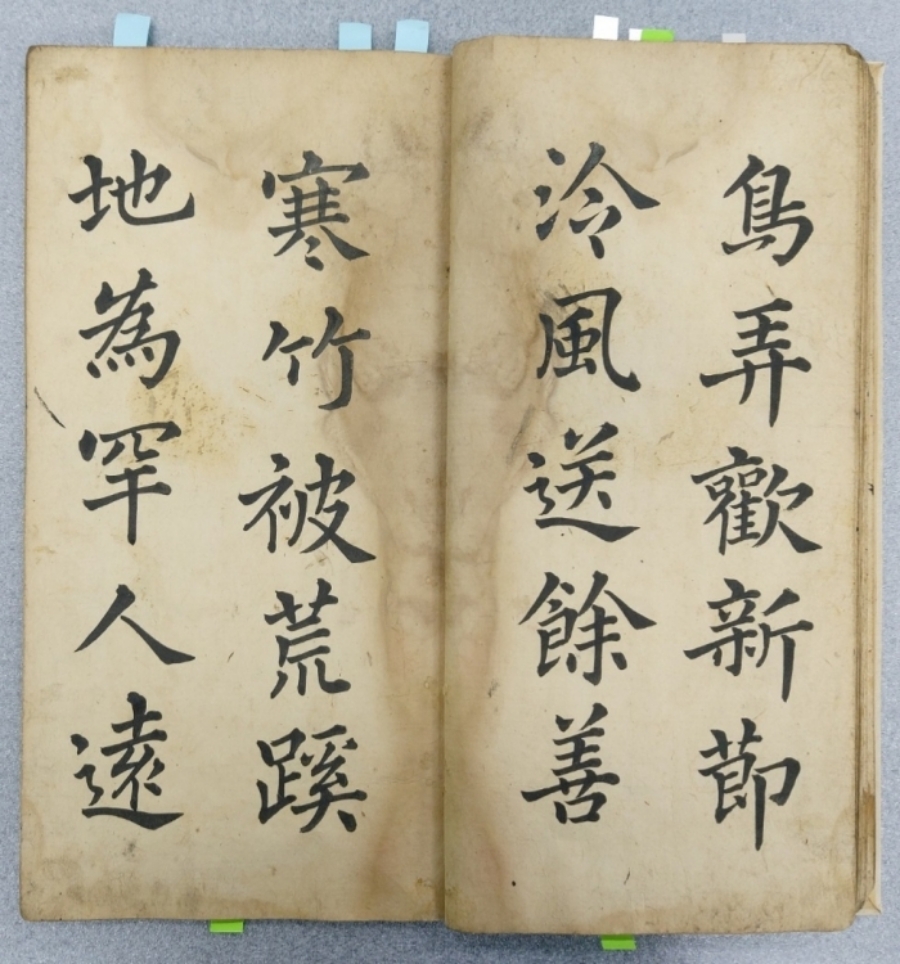 鳥弄歡新節
泠風送餘善
寒竹被荒蹊
地為罕人遠